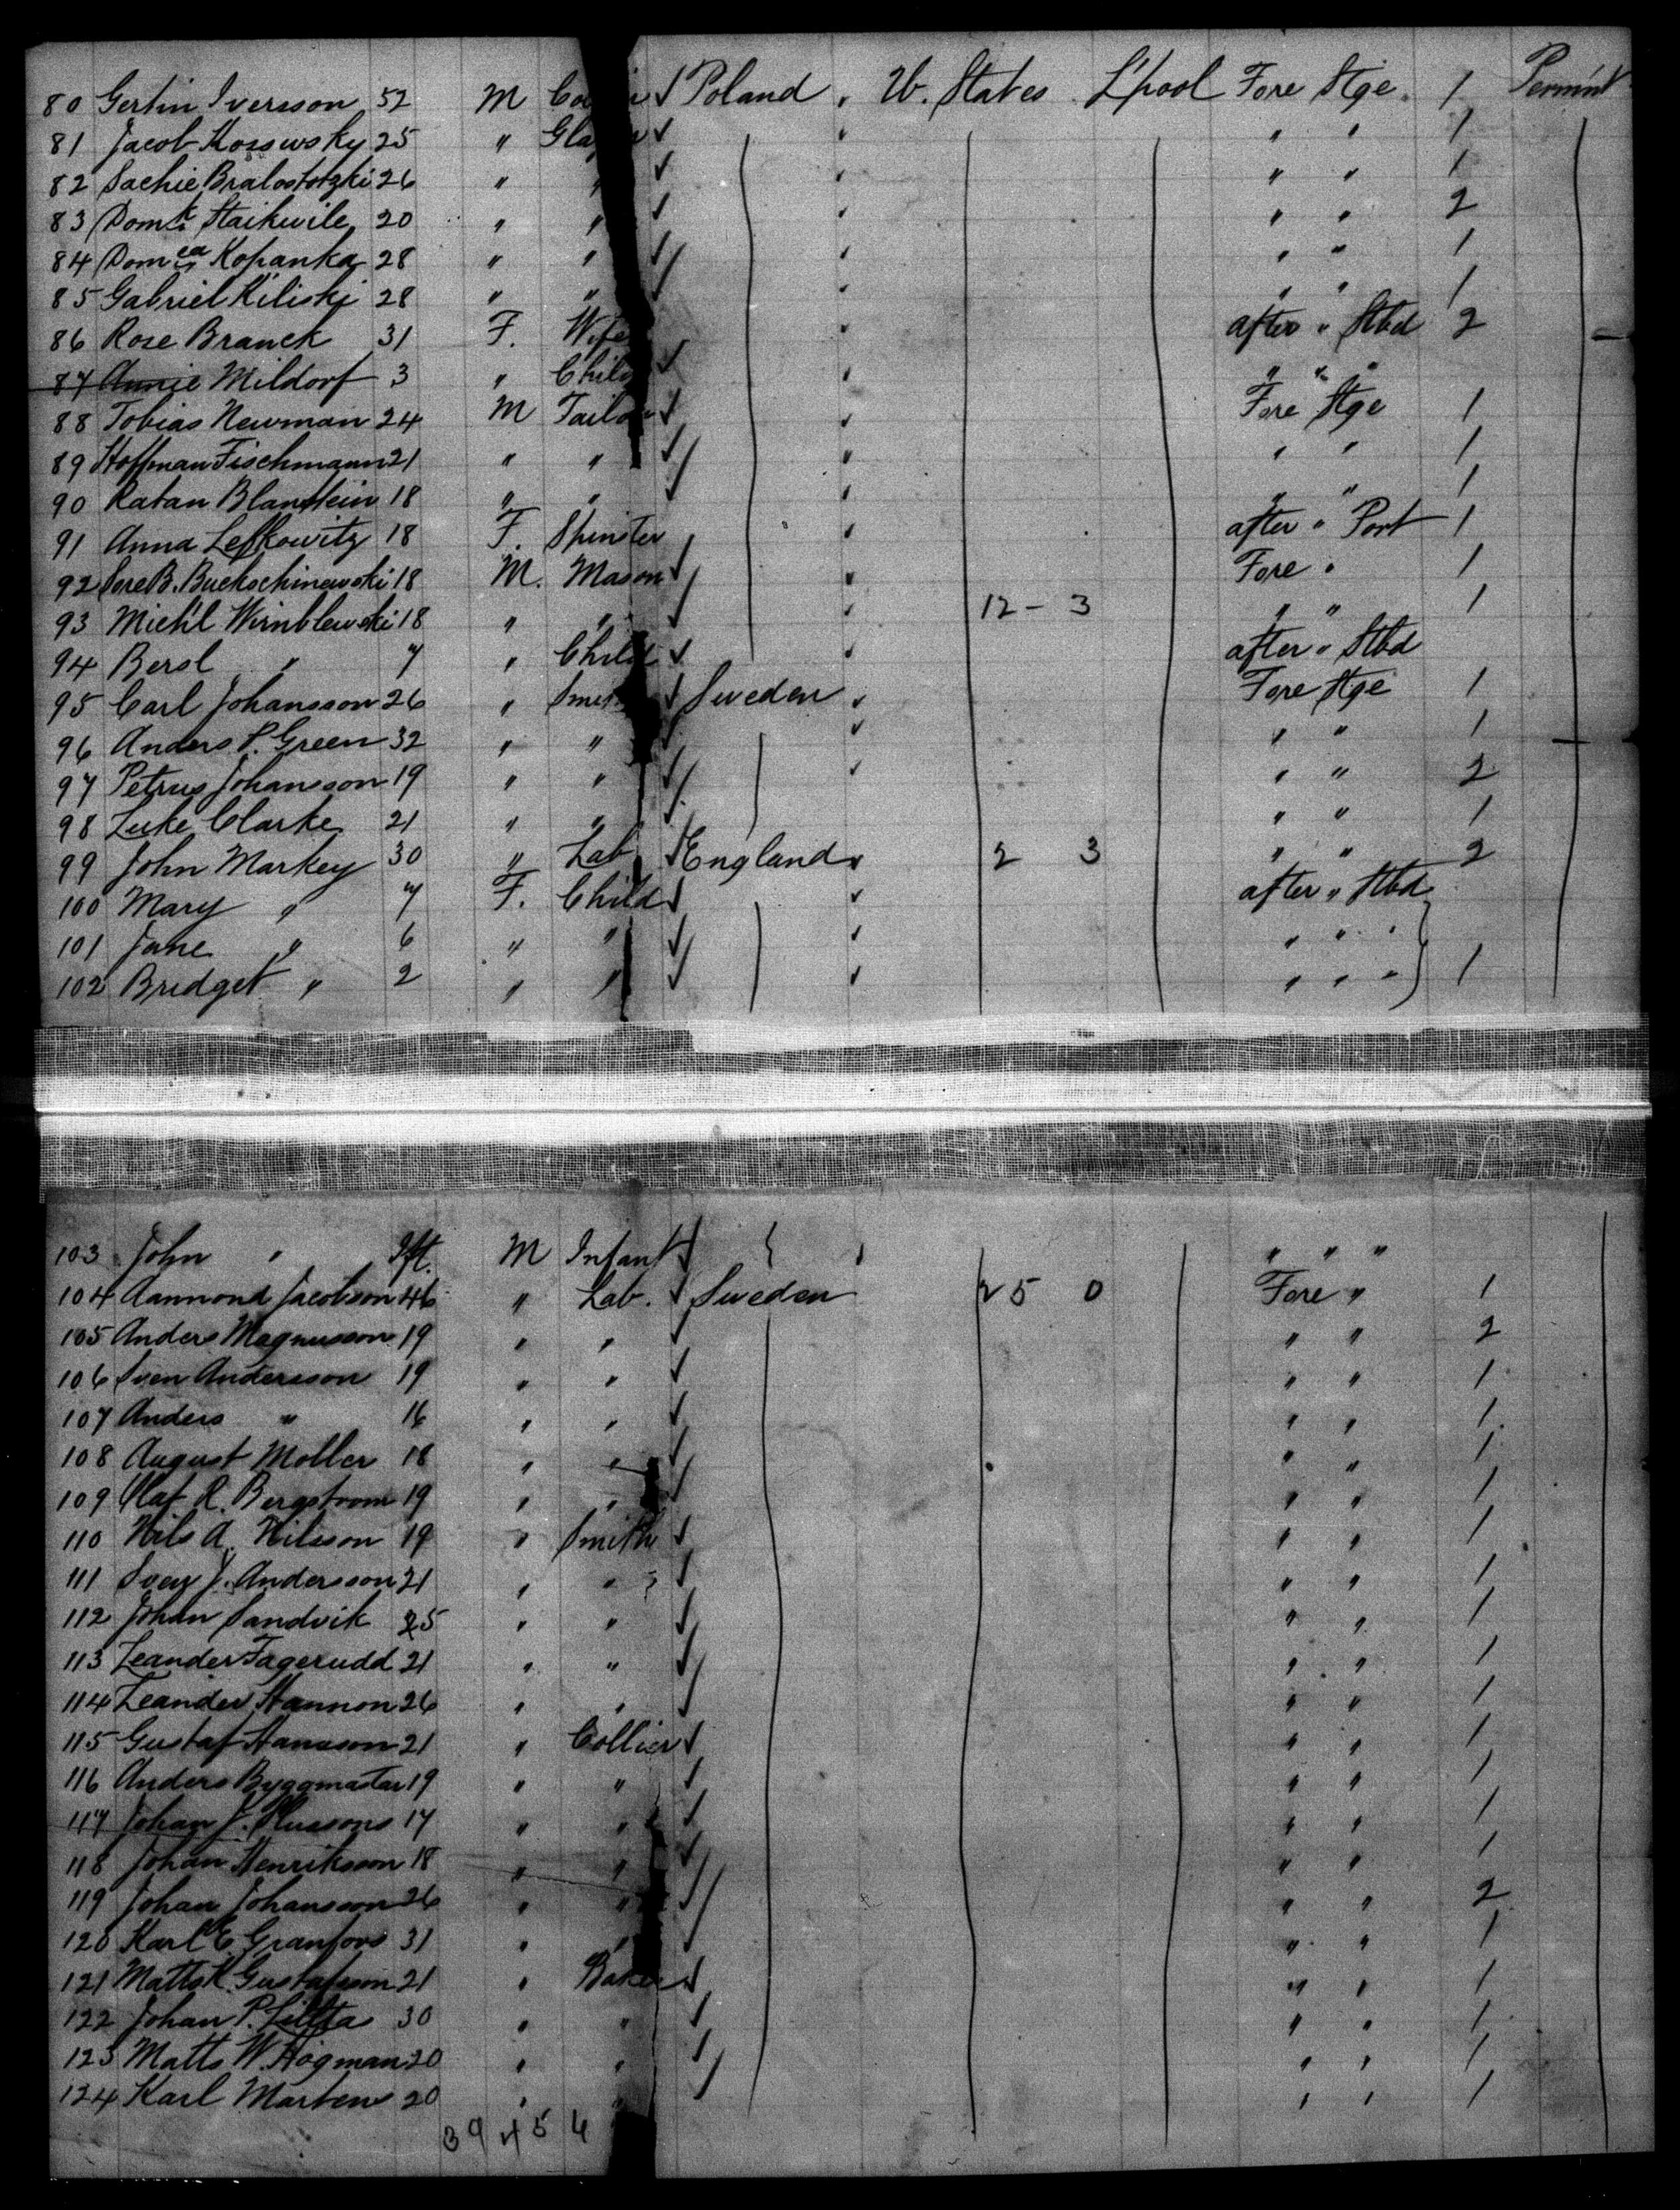 80 Gertin Iversson 52 M ✓ Poland " U. States L'pool Fore Stge 1 Perm'nt
81 Jacob Kossowsky 25 " ✓ " " " 1
82 Sachie Bralostotzki 26 " " ✓ " " " 1
83 Domk. Staikwile 20 " " ✓ " " " 2
84 Domca Kopanka 28 " " ✓ " " " 1
85 Gabriel Kiliski 28 " " ✓ " " " 1
86 Rose Branck 31 F. Wife after " Stbd 2
87 Annie Mildorf 3 " Child ✓ " " " "
88 Tobias Newman 24 M Tailor ✓ " Fore Stge 1
89 Hoffman Fischmann 21 " " ✓ " " " 1
90 Ratan Blanstein 18 " " ✓ " " " 1
91 Anna Lefkowitz 18 F. Spinster " after " Port 1
92 Sore B. Buckschinewski 18 M. Mason ✓ " Fore " 1
93 Mich'l Wirnblewski 18 " " ✓ " 12 - 3 " " 1
94 Berol " 7 " Child ✓ " after " Stbd
95 Carl Johansson 26 " Smith ✓ Sweden " Fore Stge 1
96 Anders P. Green 32 " " ✓ " " " 1
97 Petrus Johansson 19 " " ✓ " " " 2
98 Luke Clarke 21 " " ✓ " " 1
99 John Markey 30 " Lab ✓ England " 2 3 " " 2
100 Mary " 7 F. Child ✓ " after " Stbd
101 Jane " 6 " " ✓ " " " "
102 Bridget " 2 " " ✓ " " " " 1
103 John " Ift. M Infant ✓ " " " "
104 Aammond Jacobson 46 " Lab. ✓ Sweden 25 0 Fore " 1
105 Anders Magnusson 19 " " ✓ " " 2
106 Sven Andersson 19 " " ✓ " " 1
107 Anders " 16 " " ✓ " " 1
108 August Moller 18 " " ✓ " " 1
109 Olaf R. Bergstrom 19 " " ✓ " " 1
110 Nils A. Nilsson 19 " Smith ✓ " " 1
111 Sven J. Andersson 21 " " ✓ " " 1
112 Johan Sandvik 25 " " ✓ " " 1
113 Leander Fagerudd 21 " " ✓ " " 1
114 Leander Hannon 26 " " ✓ " " 1
115 Gustaf Hansson 21 " Collier ✓ " " 1
116 Anders Byggmastar 19 " " ✓ " " 1
117 Johan J. 17 " " ✓ " " 1
118 Johan Henriksson 18 " " ✓ " " 1
119 Johan Johansson 26 " " ✓ " " 2
120 Karl E. Granfors 31 " " ✓ " " 1
121 Matts K. Gustafsson 21 " Baker ✓ " " 1
122 Johan P. 30 " " ✓ " " 1
123 Matts W. Hogman 20 " " ✓ " " 1
124 Karl Martens 20 " " ✓ " " 1
39 4 5 6